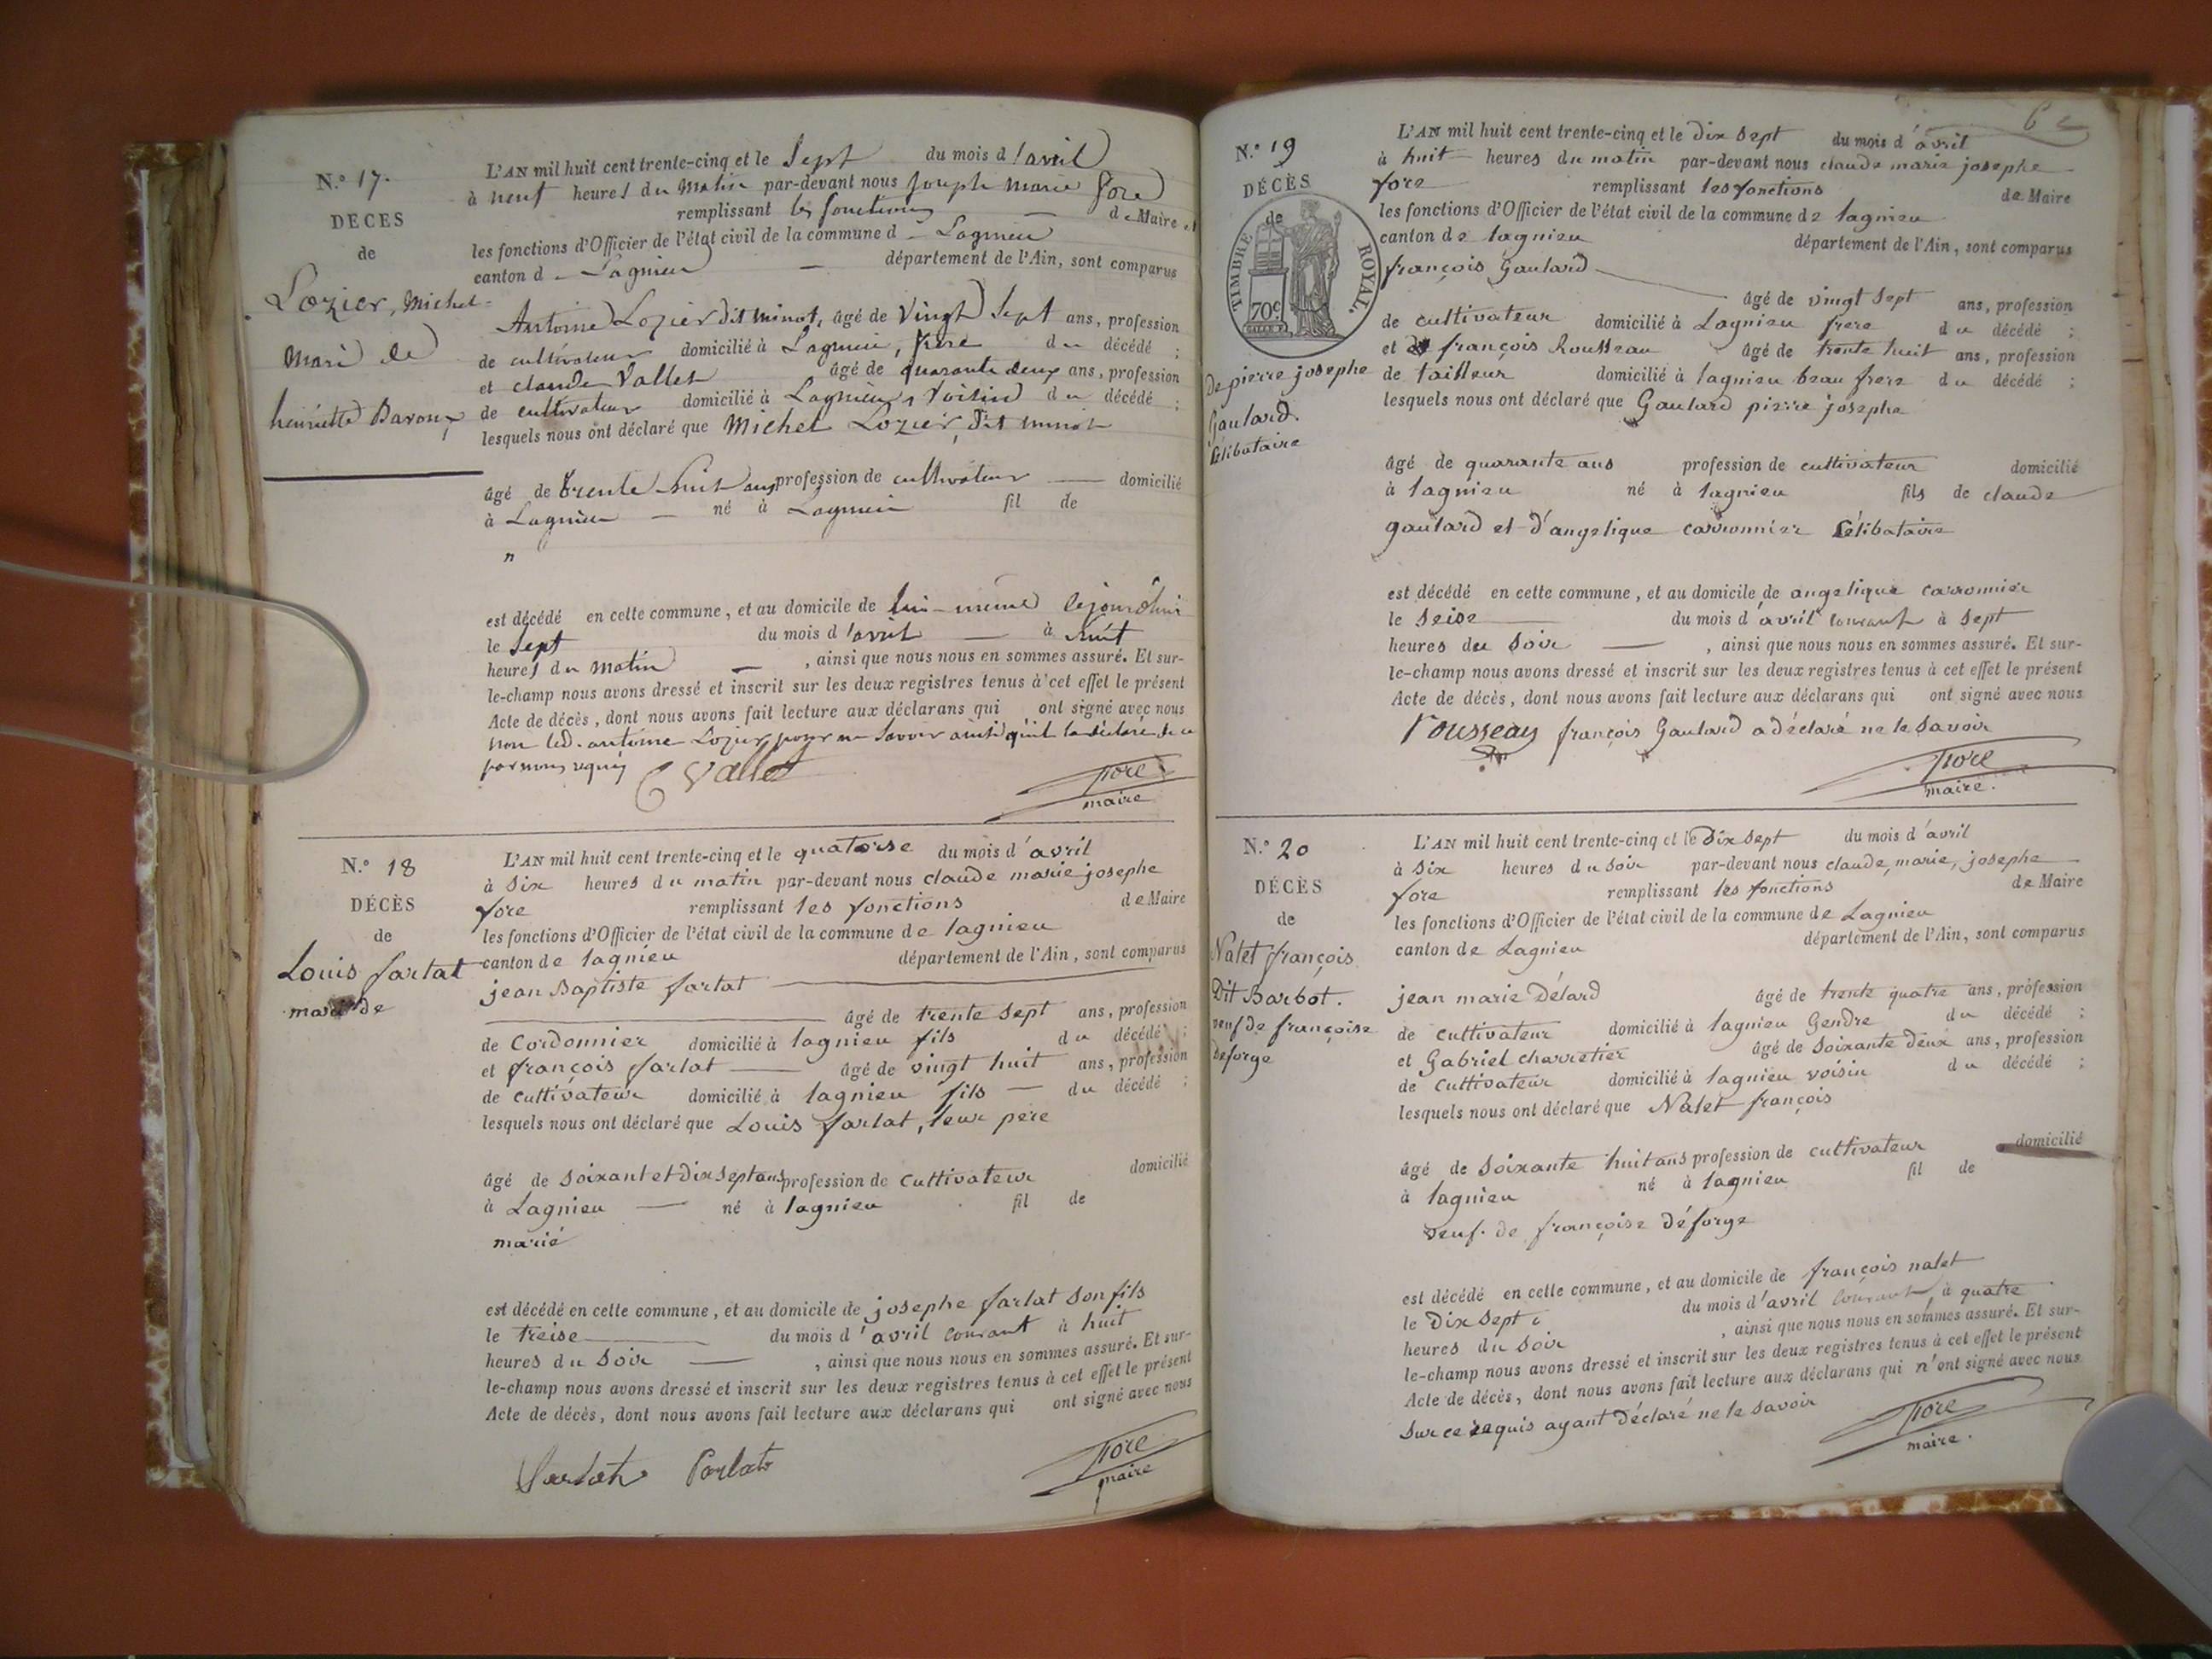 N.º 17.
DÉCÈS
de
Lozier, Michel
Mari de
henriette Baroux
L'AN mil huit cent trente-cinq et le Sept du mois d'avril
à neuf heures du Matin par-devant nous Joseph Marie fore
remplissant les fonctions de Maire et
les fonctions d'Officier de l'état civil de la commune d Lagnieu
canton d Lagnieu département de l'Ain, sont comparus
Antoine Lozier dit Minot, âgé de Vingt Sept ans, profession
de cultivateur domicilié à Lagnieu, frère du décédé ;
et claude Vallet âgé de quarante deux ans, profession
de cultivateur domicilié à Lagnieu, Voisin du décédé ;
lesquels nous ont déclaré que Michel Lozier, dit minot
âgé de trente huit ans profession de cultivateur domicilié
à Lagnieu né à Lagnieu fil de
"
est décédé en cette commune, et au domicile de lui-même cejourd'hui
le Sept du mois d'avril à huit
heures du Matin , ainsi que nous nous en sommes assuré. Et sur-
le-champ nous avons dressé et inscrit sur les deux registres tenus à cet effet le présent
Acte de décès, dont nous avons fait lecture aux déclarans qui ont signé avec nous
non led. antoine Lozier pour ne Savoir ainsi qu'il l'a déclaré de ce
par nous requis
C Vallet
fore
maire
N.º 18
DÉCÈS
de
Louis farlat
mari de
L'AN mil huit cent trente-cinq et le quatorse du mois d'avril
à Six heures du matin par-devant nous claude marie josephe
fore remplissant les fonctions de Maire
les fonctions d'Officier de l'état civil de la commune de lagnieu
canton de lagnieu département de l'Ain, sont comparus
jean Baptiste farlat
âgé de trente sept ans, profession
de Cordonnier domicilié à lagnieu fils du décédé ;
et françois farlat âgé de vingt huit ans, profession
de cultivateur domicilié à lagnieu fils du décédé ;
lesquels nous ont déclaré que Louis farlat, leur père
âgé de soixant et dix sept ans profession de Cultivateur domicilié
à Lagnieu né à lagnieu fil de
marié
est décédé en cette commune, et au domicile de josephe farlat son fils
le treise du mois d'avril courant à huit
heures du Soir , ainsi que nous nous en sommes assuré. Et sur-
le-champ nous avons dressé et inscrit sur les deux registres tenus à cet effet le présent
Acte de décès, dont nous avons fait lecture aux déclarans qui ont signé avec nous
farlat farlat
fore
maire
N.º 19
DÉCÈS
de
TIMBRE ROYAL.
70c
De pierre josephe
Gaulard.
Célibataire
L'AN mil huit cent trente-cinq et le dix sept du mois d'avril
à huit heures du matin par-devant nous claude marie josephe
fore remplissant les fonctions de Maire
les fonctions d'Officier de l'état civil de la commune de lagnieu
canton de lagnieu département de l'Ain, sont comparus
françois Gaulard
âgé de vingt sept ans, profession
de cultivateur domicilié à Lagnieu frere du décédé ;
et françois Rousseau âgé de trente huit ans, profession
de tailleur domicilié à lagnieu beau frere du décédé ;
lesquels nous ont déclaré que Gaulard pierre josephe
âgé de quarante ans profession de cultivateur domicilié
à lagnieu né à lagnieu fils de claude
gaulard et d'angelique carronnier Célibataire
est décédé en cette commune, et au domicile de angelique carronnier
le Seise du mois d'avril courant à sept
heures du Soir , ainsi que nous nous en sommes assuré. Et sur-
le-champ nous avons dressé et inscrit sur les deux registres tenus à cet effet le présent
Acte de décès, dont nous avons fait lecture aux déclarans qui ont signé avec nous
rousseau françois Gaulard a déclaré ne le savoir
fore
maire.
N.º 20
DÉCÈS
de
Nalet françois
Dit Barbot.
veuf de françoise
deforge
L'AN mil huit cent trente-cinq et le Dix sept du mois d'avril
à Six heures du soir par-devant nous claude, marie, josephe
fore remplissant les fonctions de Maire
les fonctions d'Officier de l'état civil de la commune de Lagnieu
canton de Lagnieu département de l'Ain, sont comparus
jean marie Délard âgé de trente quatre ans, profession
de cultivateur domicilié à lagnieu Gendre du décédé ;
et Gabriel charretier âgé de Soixante deux ans, profession
de Cultivateur domicilié à lagnieu voisin du décédé ;
lesquels nous ont déclaré que Nalet françois
âgé de Soixante huit ans profession de cultivateur domicilié
à lagnieu né à lagnieu fil de
veuf. de françoise déforge
est décédé en cette commune, et au domicile de françois nalet
le Dix sept du mois d'avril courant à quatre
heures du Soir , ainsi que nous nous en sommes assuré. Et sur-
le-champ nous avons dressé et inscrit sur les deux registres tenus à cet effet le présent
Acte de décès, dont nous avons fait lecture aux déclarans qui n'ont signé avec nous
Sur ce requis ayant déclaré ne le savoir
fore
maire.